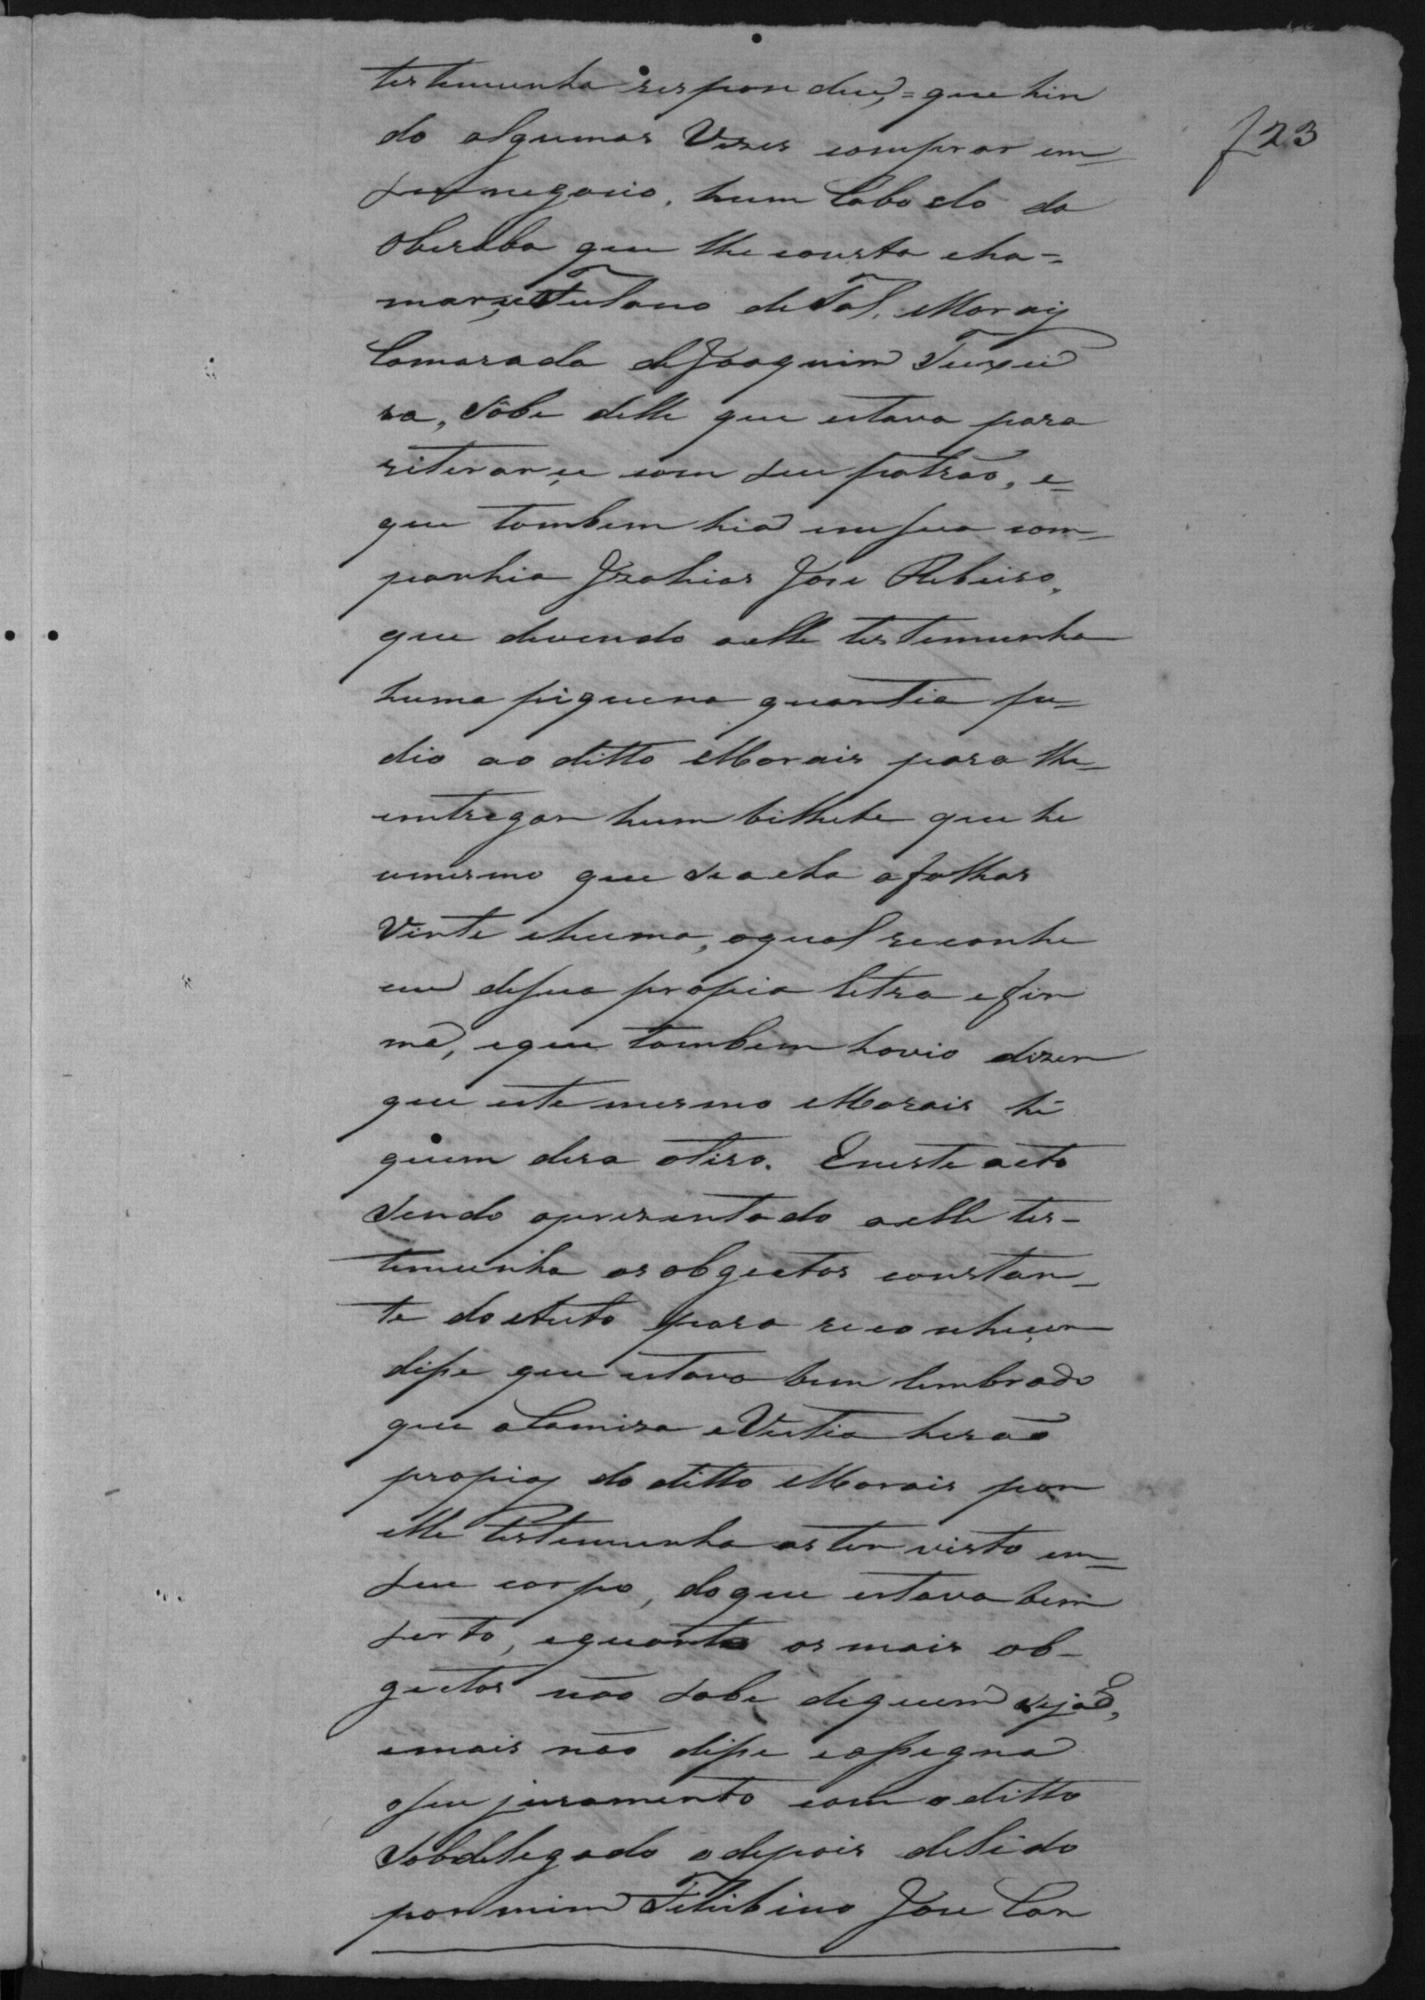 f 23
testemunha respondeu, = que hin
do algumas Vezes comprar em
seu negocio, hum Caboclo da
Oberaba que lhe consta cha-
marse Fulano de Tal. Morais
Camarada de Joaquim Teixei
ra, Sobe delle que estava para
retirarçe com seu patrão, e
que tambem hia em sua com
panhia Izahias Jose Ribeiro,
que devendo aelle testemunha
huma piquena quantia pe
dio ao ditto Morais para lhe
entregar hum bilhete que he
omesmo que se acha a folhas
Vinte ehuma, oqual reconhe
ceu de sua propia letra e fir
ma, eque tambem havio dizer
que este mesmo Morais hé
quem dera otiro. Eneste acto
sendo aprezentado aelle tes-
temunha os obgectos constan
te do Auto para reconheçer
disse que estava bem lembrado
que a Camiza e Vestia herão
propias do ditto Morais por
elle Testemunha as ter visto em
seu corpo, do que estava bem
serto, equanto os mais ob-
gectos não sabe de quem sejão,
emais não disse easségna
oseu juramento com o ditto
Sobdelegado e depois de lido
por mim Felisbino Jose Cor